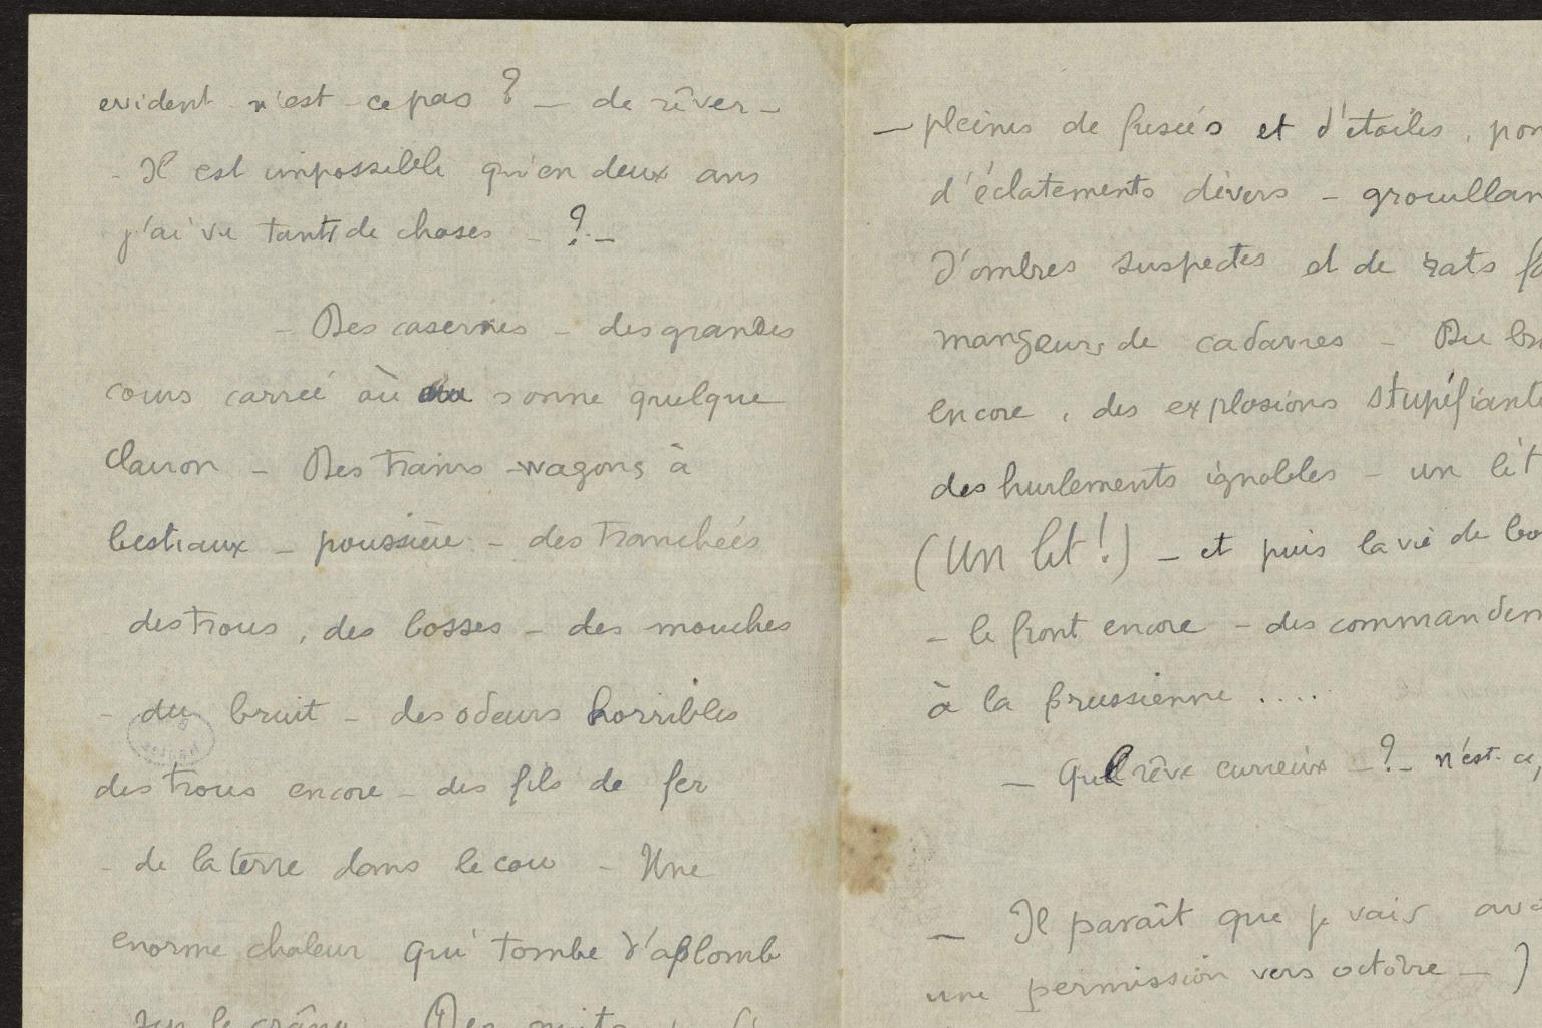 evident n'est-ce pas ? — de rêver —
- Il est impossible qu'en deux ans
j'ai vu tant de choses - ? -
- Des casernes - des grandes
cours carrée où sonne quelque
clairon - Des trains - wagons à
bestiaux - poussière - des tranchées
des trous, des bosses - des mouches
- du bruit - des odeurs horribles
des trous encore - des fils de fer
- de la terre dans le cou - Une
enorme chaleur qui tombe d'aplomb
sur le crâne Des nuits
— pleines de fusées et d'étoiles,
d'éclatements divers - grouillan
d'ombres suspectes et de rats
mangeurs de cadavres - Du
encore, des explosions stupéfiante
des hurlements ignobles - un lit
(Un lit !) - et puis la vie de
- le front encore - des commandem
à la prussienne .....
— Quel rêve curieux - ? - n'est-ce
— Il paraît que je vais
une permission vers octobre - J